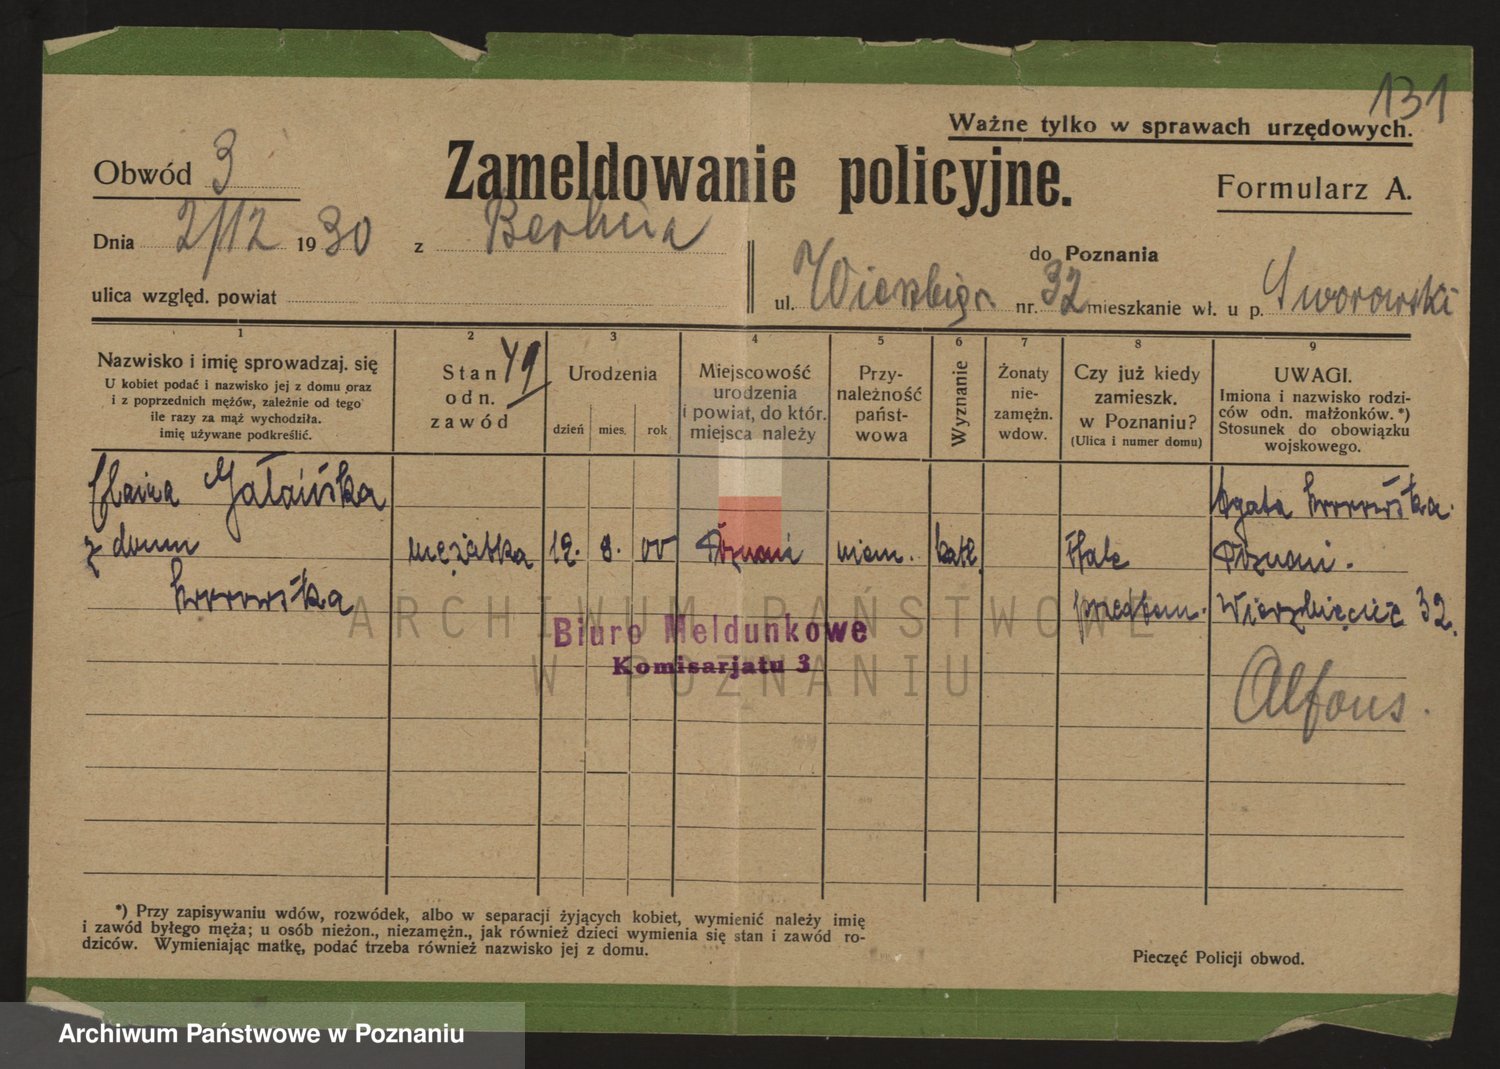 131
Ważne tylko w sprawach urzędowych.
Obwód 3
Zameldowanie policyjne.
Formularz A.
Dnia 2/12 1930 z Berlina
do Poznania
ulica względ. powiat
ul. nr. 32 mieszkanie wł. u p. Sworowski
1 2 3 4 5 6 7 8 9
Nazwisko i imię sprowadzaj. się
U kobiet podać i nazwisko jej z domu oraz
i z poprzednich mężów, zależnie od tego
ile razy za mąż wychodziła.
imię używane podkreślić.
Stan
odn.
zawód
Urodzenia
dzień mies. rok
Miejscowość
urodzenia
i powiat, do któr.
miejsca należy
Przy-
należność
państ-
wowa
Wyznanie
Żonaty
nie-
zamężn.
wdow.
Czy już kiedy
zamieszk.
w Poznaniu?
(Ulica i numer domu)
UWAGI.
Imiona i nazwisko rodzi-
ców odn. małżonków.*)
Stosunek do obowiązku
wojskowego.
Agata
z domu
mężatka
8. 00 Poznań niem. katl.
Poznań.
Wierzbięcice 32.
Alfons.
ARCHIWUM PAŃSTWOWE
W POZNANIU
Biuro Meldunkowe
Komisarjatu 3
*) Przy zapisywaniu wdów, rozwódek, albo w separacji żyjących kobiet, wymienić należy imię
i zawód byłego męża; u osób nieżon., niezamężn., jak również dzieci wymienia się stan i zawód ro-
dziców. Wymieniając matkę, podać trzeba również nazwisko jej z domu.
Pieczęć Policji obwod.
Archiwum Państwowe w Poznaniu